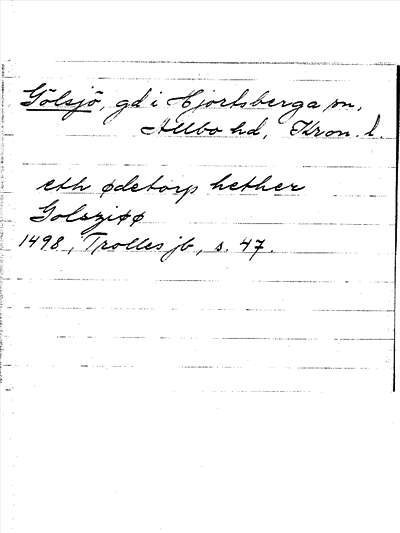 Gölsjö, gd i Hjortsberga sn,
Allbo hd, Kron. l.
eth ødetorp hether
Golsziøø
1498, Trolles jb, s. 47.